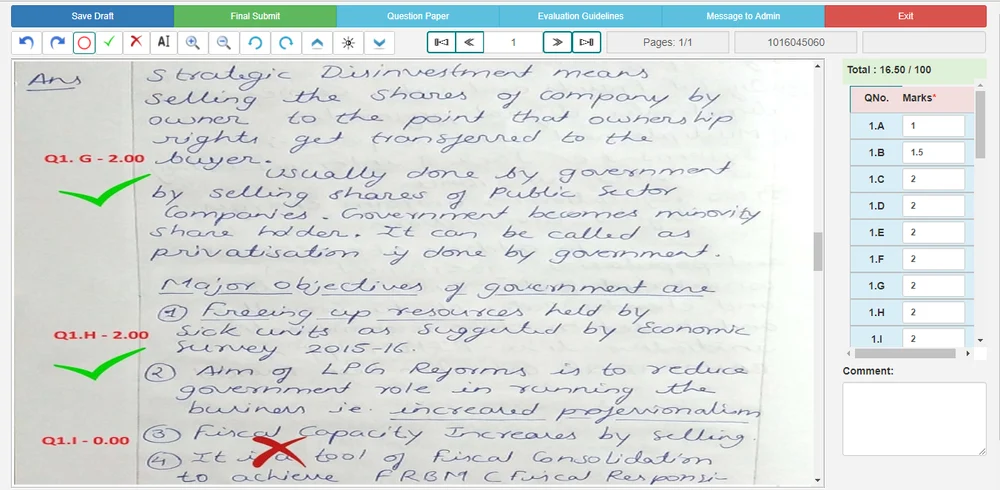 Save Draft
Final Submit
Question Paper
Evaluation Guidelines
Message to Admin
Exit
AI
1
Pages: 1/1
1016045060
Ans
Strategic Disinvestment means
selling the shares of company by
owner to the point that ownership
rights get transferred to the
Q1. G - 2.00
buyer.
usually done by government
by selling shares of Public Sector
Companies. Government becomes minority
share holder. It can be called as
privatisation if done by government.
Major objectives of government are
① Freeing up resources held by
Q1.H - 2.00
sick units as suggested by Economic
Survey 2015-16.
② Aim of LPG Reforms is to reduce
government role in running the
business ie. increased professionalism
Q1.I - 0.00
③ Fiscal Capacity Increases by selling.
④ It is a tool of Fiscal Consolidation
to achieve FRBM (Fiscal Responsi-
Total : 16.50 / 100
QNo. Marks*
1.A 1
1.B 1.5
1.C 2
1.D 2
1.E 2
1.F 2
1.G 2
1.H 2
1.I 2
Comment: